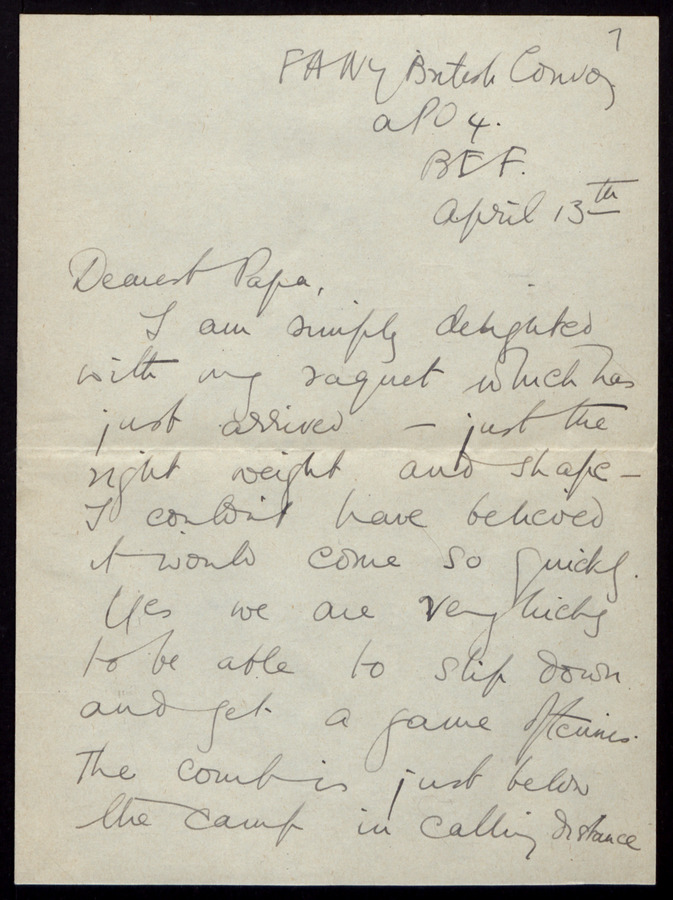 7
FANY British Convoy
APO 4.
BEF.
April 13th
Dearest Papa,
I am simply delighted
with my raquet which has
just arrived – just the
right weight and shape –
I couldn't have believed
it would come so quickly.
Yes we are very lucky
to be able to slip down
and get a game of tennis.
The court is just below
the camp in calling distance